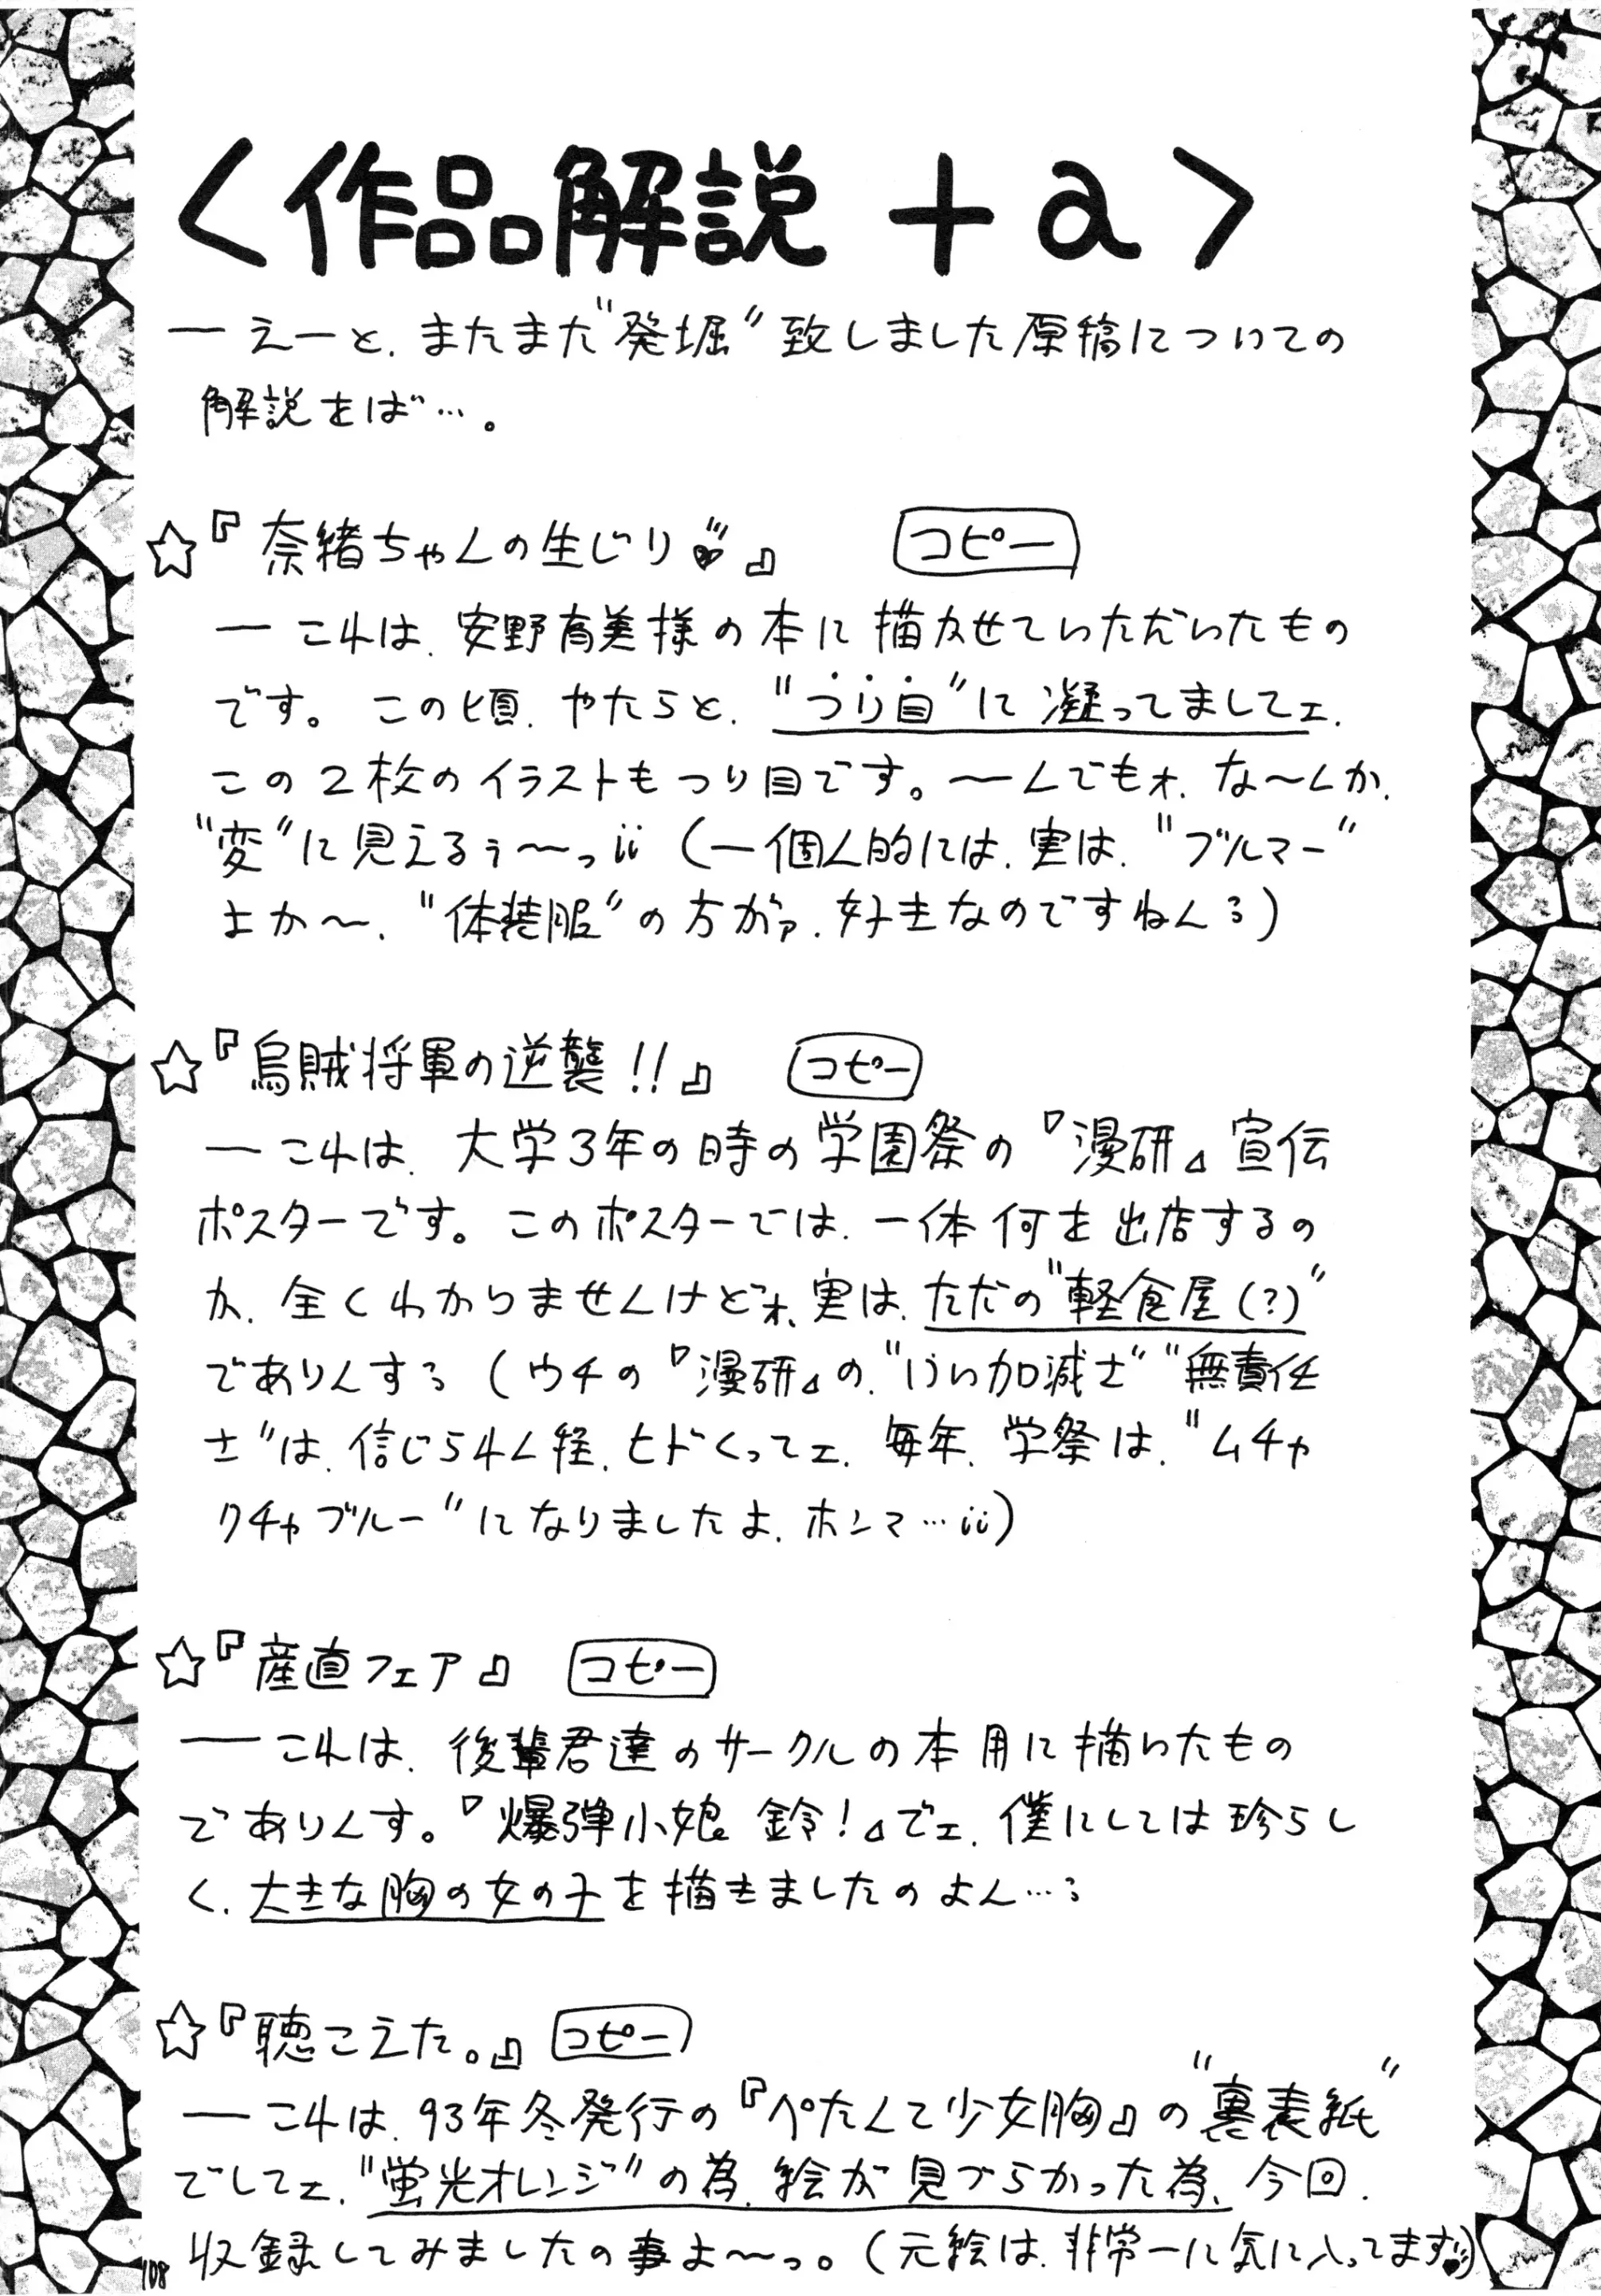 ＜作品解説 ＋a＞
— えーと、またまた"発掘"致しました原稿についての
解説をば…。
☆『奈緒ちゃんの生じり♥』 コピー
— これは、安野有美様の本に描かせていただいたもの
です。この頃、やたらと、"つり目"に凝ってましてェ、
この2枚のイラストもつり目です。〜んでもォ、な〜んか、
"変"に見えるぅ〜っii（—個人的には、実は、"ブルマー"
よか〜、"体装服"の方がァ、好きなのですねんる）
☆『烏賊将軍の逆襲!!』 コピー
— これは、大学3年の時の学園祭の『漫研』宣伝
ポスターです。このポスターでは、一体何を出店するの
か、全くわかりませんけどォ、実は、ただの"軽食屋(?)"
でありんする（ウチの『漫研』の、"いい加減さ""無責任
さ"は、信じられん程、ヒドくってェ、毎年、学祭は、"ムチャ
クチャブルー"になりましたよ、ホンマ…ii）
☆『産直フェア』 コピー
— これは、後輩君達のサークルの本用に描いたもの
でありんす。『爆弾小娘 鈴!』でェ、僕にしては珍らし
く、大きな胸の女の子を描きましたのよん…る
☆『聴こえた。』 コピー
— これは、93年冬発行の『ぺたんて少女胸』の"裏表紙"
でしてェ、"蛍光オレンジ"の為、絵が見づらかった為、今回、
収録してみましたの事よ〜っ。（元絵は、非常ーに気に入ってます♥）
108